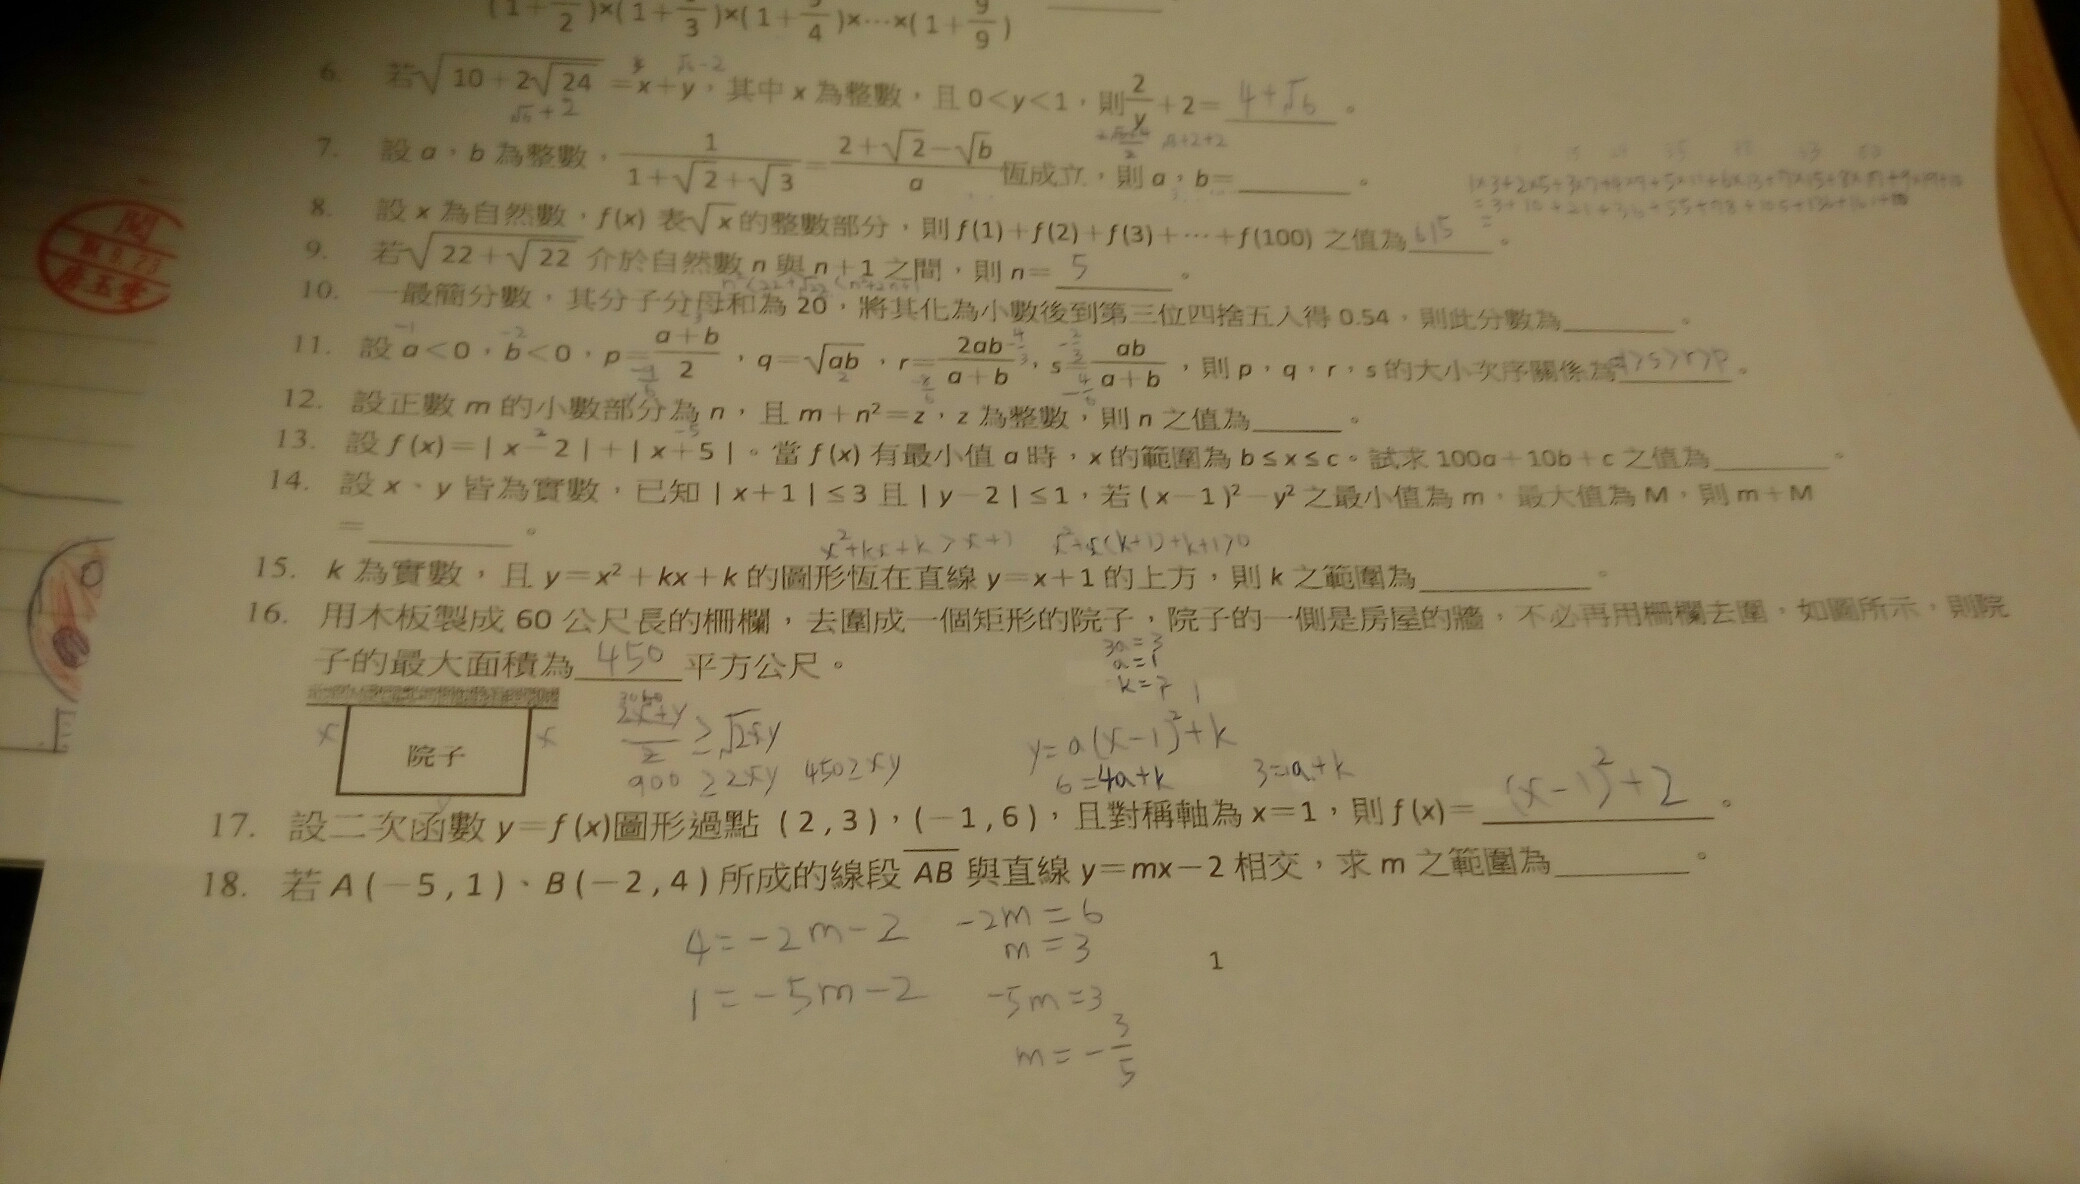 (1+ /2)×(1+ /3)×(1+ /4)×⋯×(1+9/9)
6. 若√(10+2√24)=x+y，其中 x 為整數，且 0<y<1，則 2/y +2= 4+√6 。
√6+2
7. 設 a，b 為整數，1/(1+√2+√3)=(2+√2−√b)/a 恆成立，則 a，b=______。
8. 設 x 為自然數，f(x) 表√x的整數部分，則 f(1)+f(2)+f(3)+⋯+f(100) 之值為 615 。
9. 若√(22+√22) 介於自然數 n 與 n+1 之間，則 n= 5 。
10. 一最簡分數，其分子分母和為 20，將其化為小數後到第三位四捨五入得 0.54，則此分數為______。
11. 設 a<0，b<0，p=(a+b)/2，q=√ab，r=2ab/(a+b)，s=ab/(a+b)，則 p，q，r，s 的大小次序關係為 q>s>r>p 。
12. 設正數 m 的小數部分為 n，且 m+n²=z，z 為整數，則 n 之值為______。
13. 設 f(x)=|x−2|+|x+5|。當 f(x) 有最小值 a 時，x 的範圍為 b≤x≤c。試求 100a+10b+c 之值為______。
14. 設 x、y 皆為實數，已知 |x+1|≤3 且 |y−2|≤1，若 (x−1)²−y² 之最小值為 m，最大值為 M，則 m+M
=______。
x²+kx+k>x+1
15. k 為實數，且 y=x²+kx+k 的圖形恆在直線 y=x+1 的上方，則 k 之範圍為______。
16. 用木板製成 60 公尺長的柵欄，去圍成一個矩形的院子，院子的一側是房屋的牆，不必再用柵欄去圍，如圖所示，則院
子的最大面積為 450 平方公尺。
3a=3
a=1
x 院子 x
(2x+y)/2 ≥ √2xy
900 ≥ 2xy 450≥xy
y=a(x−1)²+k
6=4a+k 3=a+k
17. 設二次函數 y=f(x)圖形過點 (2,3)，(−1,6)，且對稱軸為 x=1，則 f(x)= (x−1)²+2 。
18. 若 A(−5,1)、B(−2,4) 所成的線段 AB 與直線 y=mx−2 相交，求 m 之範圍為______。
4=−2m−2 −2m=6
m=3
1=−5m−2 −5m=3
m=−3/5
1